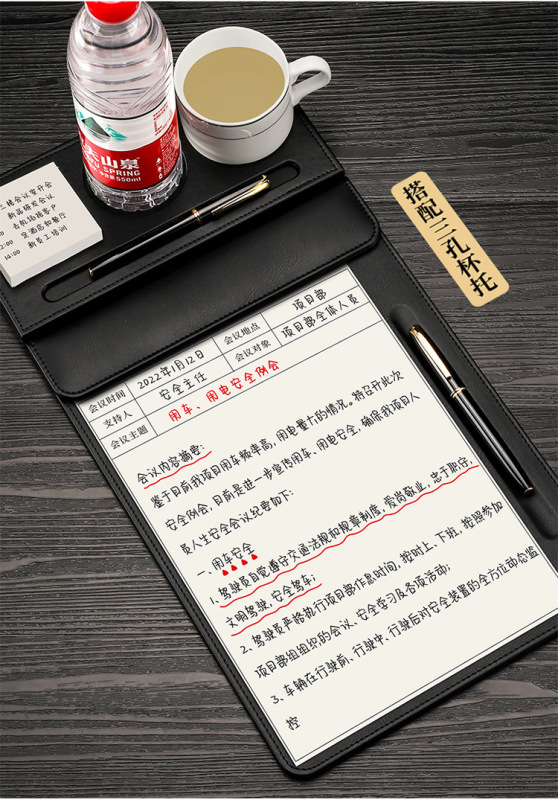 山泉
SPRING
550ml
新品研发会议
去机场接客户
至酒店和餐厅
新员工培训
搭配三孔杯托
会议时间 2022年1月12日 会议地点 项目部
支持人 安全主任 会议对象 项目部全体人员
会议主题 用车、用电安全例会
会议内容摘要:
鉴于目前我项目用车频率高,用电量大的情况。特召开此次
安全例会,目前是进一步宣传用车、用电安全,确保我项目人
员人生安全会议纪要如下:
一、用车安全
1、驾驶员自觉遵守交通法规和规章制度,爱岗敬业,忠于职守,
文明驾驶,安全驾车;
2、驾驶员严格执行项目部作息时间,按时上、下班,按照参加
项目部组组织的会议、安全学习及各项活动;
3、车辆在行驶前、行驶中、行驶后对安全装置的全方位动态监
控